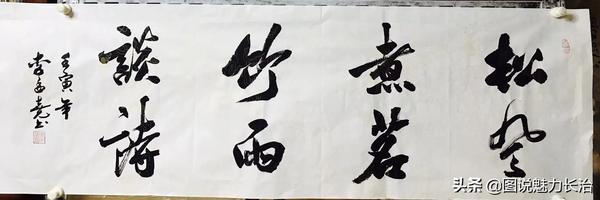 松风
煮茗
竹雨
談詩
壬寅年
李堯书
头条 @图说魅力长治